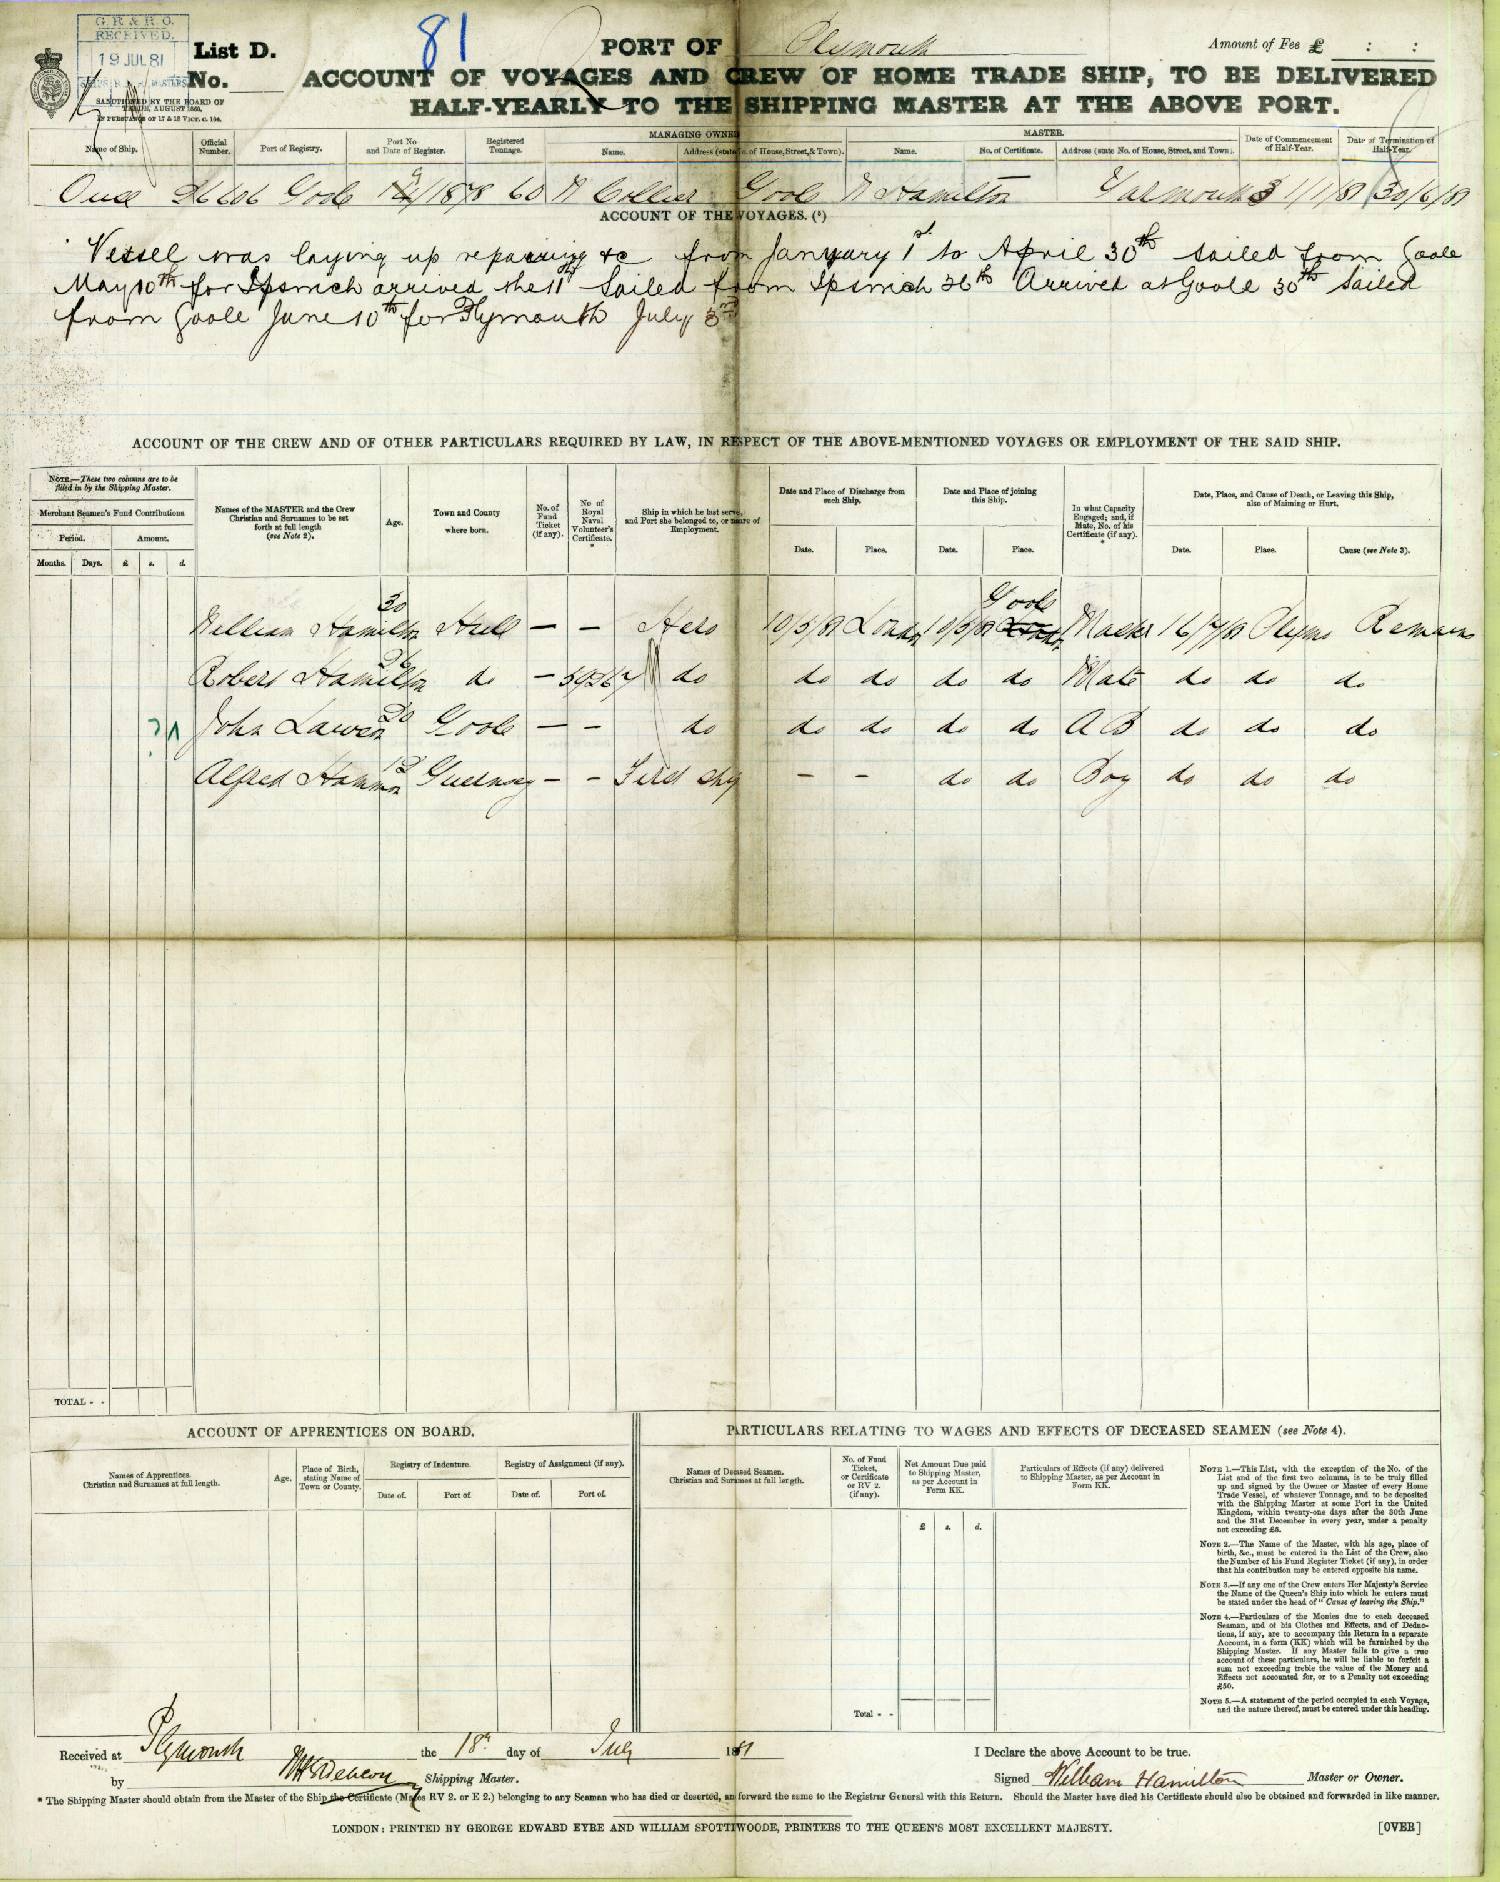 G. R & R. O.
RECEIVED.
19 JUL 81
List D.
No.
81
PORT OF Plymouth
Amount of Fee £ : :
SANCTIONED BY THE BOARD OF
TRADE, AUGUST 1860,
IN PURSUANCE OF 17 & 18 VICT. c. 104.
ACCOUNT OF VOYAGES AND CREW OF HOME TRADE SHIP, TO BE DELIVERED
HALF-YEARLY TO THE SHIPPING MASTER AT THE ABOVE PORT.
Name of Ship. Official Number. Port of Registry. Port No and Date of Register. Registered Tonnage. MANAGING OWNER Name. Address (state No. of House, Street, & Town). MASTER. Name. No. of Certificate. Address (state No. of House, Street, and Town). Date of Commencement of Half-Year. Date of Termination of Half-Year.
Ouse 26606 Goole /1878 60 Collier Goole W Hamilton Yarmouth 1/1/81 30/6/81
ACCOUNT OF THE VOYAGES. (⁵)
Vessel was laying up repairing &c from January 1st to April 30th Sailed from Goole
May 10th for Ipswich arrived the 11th Sailed from Ipswich 26th Arrived at Goole 30th Sailed
from Goole June 10th for Plymouth July 3rd
ACCOUNT OF THE CREW AND OF OTHER PARTICULARS REQUIRED BY LAW, IN RESPECT OF THE ABOVE-MENTIONED VOYAGES OR EMPLOYMENT OF THE SAID SHIP.
NOTE.—These two columns are to be filled in by the Shipping Master.
Merchant Seamen's Fund Contributions
Period. Amount.
Months. Days. £ s. d.
Names of the MASTER and the Crew Christian and Surnames to be set forth at full length (see Note 2).
Age.
Town and County where born.
No. of Fund Ticket (if any).
No of Royal Naval Volunteer's Certificate. *
Ship in which he last served, and Port she belonged to, or nature of Employment.
Date and Place of Discharge from such Ship. Date. Place.
Date and Place of joining this Ship. Date. Place.
In what Capacity Engaged; and, if Mate, No. of his Certificate (if any). *
Date, Place, and Cause of Death, or Leaving this Ship, also of Maiming or Hurt. Date. Place. Cause (see Note 3).
William Hamilton 30 Hull — — Hero 10/5/81 London 10/5/81 Goole Master 16/7/81 Plymo Remains
Robert Hamilton 26 do — 59267 do do do do do Mate do do do
John Lawson 20 Goole — — do do do do do AB do do do
Alfred Hammon Guernsey — — First ship — — do do Boy do do do
TOTAL - -
ACCOUNT OF APPRENTICES ON BOARD.
Names of Apprentices. Christian and Surnames at full length. Age. Place of Birth, stating Name of Town or County. Registry of Indenture. Date of. Port of. Registry of Assignment (if any). Date of. Port of.
PARTICULARS RELATING TO WAGES AND EFFECTS OF DECEASED SEAMEN (see Note 4).
Names of Deceased Seamen. Christian and Surnames at full length. No. of Fund Ticket, or Certificate or RV 2. (if any). Net Amount Due paid to Shipping Master, as per Account in Form KK. £ s. d. Particulars of Effects (if any) delivered to Shipping Master, as per Account in Form KK.
Total - -
NOTE 1.—This List, with the exception of the No. of the
List and of the first two columns, is to be truly filled
up and signed by the Owner or Master of every Home
Trade Vessel, of whatever Tonnage, and to be deposited
with the Shipping Master at some Port in the United
Kingdom, within twenty-one days after the 30th June
and the 31st December in every year, under a penalty
not exceeding £5.
NOTE 2.—The Name of the Master, with his age, place of
birth, &c., must be entered in the List of the Crew, also
the Number of his Fund Register Ticket (if any), in order
that his contribution may be entered opposite his name.
NOTE 3.—If any one of the Crew enters Her Majesty's Service
the Name of the Queen's Ship into which he enters must
be stated under the head of "Cause of leaving the Ship."
NOTE 4.—Particulars of the Monies due to each deceased
Seaman, and of his Clothes and Effects, and of Deduc-
tions, if any, are to accompany this Return in a separate
Account, in a form (KK) which will be furnished by the
Shipping Master. If any Master fails to give a true
account of these particulars, he will be liable to forfeit a
sum not exceeding treble the value of the Money and
Effects not accounted for, or to a Penalty not exceeding
£50.
NOTE 5.—A statement of the period occupied in each Voyage,
and the nature thereof, must be entered under this heading.
Received at Plymouth the 18th day of July 1881
by Shipping Master.
I Declare the above Account to be true.
Signed William Hamilton Master or Owner.
* The Shipping Master should obtain from the Master of the Ship the Certificate (Mates RV 2. or E 2.) belonging to any Seaman who has died or deserted, and forward the same to the Registrar General with this Return. Should the Master have died his Certificate should also be obtained and forwarded in like manner.
LONDON: PRINTED BY GEORGE EDWARD EYRE AND WILLIAM SPOTTIWOODE, PRINTERS TO THE QUEEN'S MOST EXCELLENT MAJESTY.
[OVER]